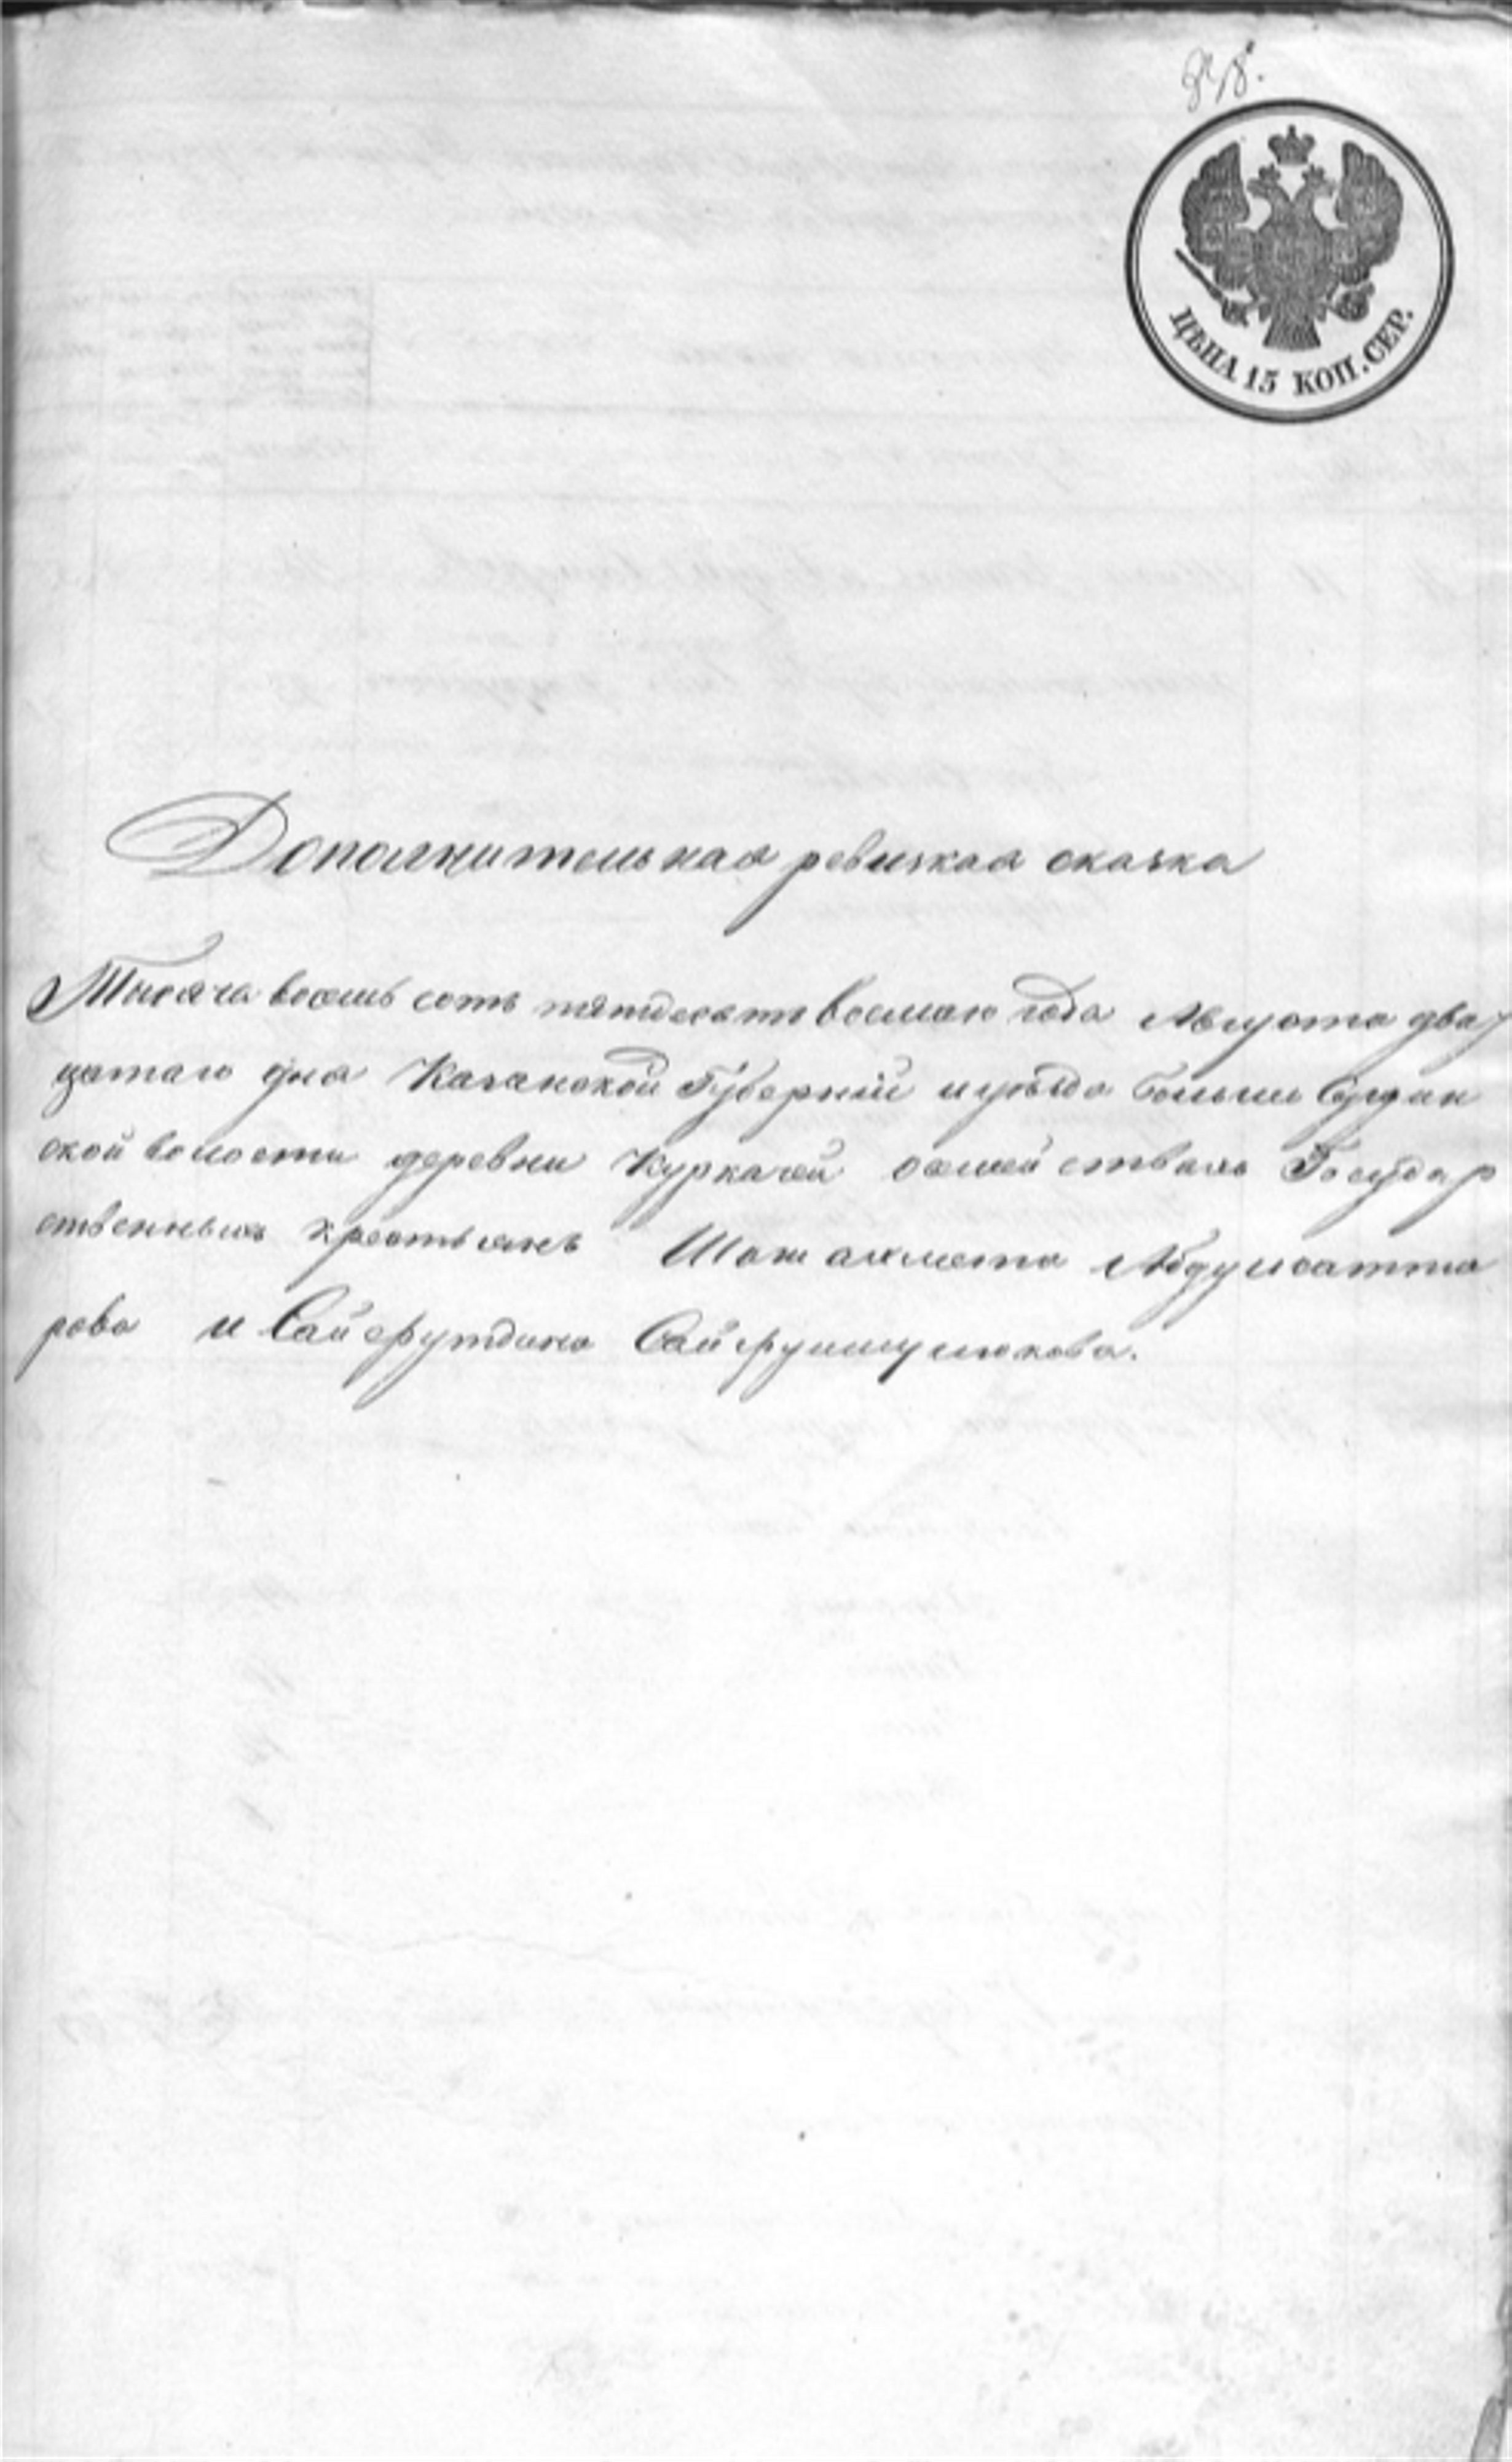 848.
ЦѢНА 15 КОП. СЕР.
Дополнительная ревизкая сказка
Тысяча восемь сотъ пятдесятъ восмаго года Августа два
цатаго дня Казанской Губерніи и уѣзда больше Сердин
ской волости деревни Куркачей о семействахъ Государ
ственныхъ крестьянъ Шагиахмета Абдулсатта
рова и Сайфутдина Сайфулмулюкова.